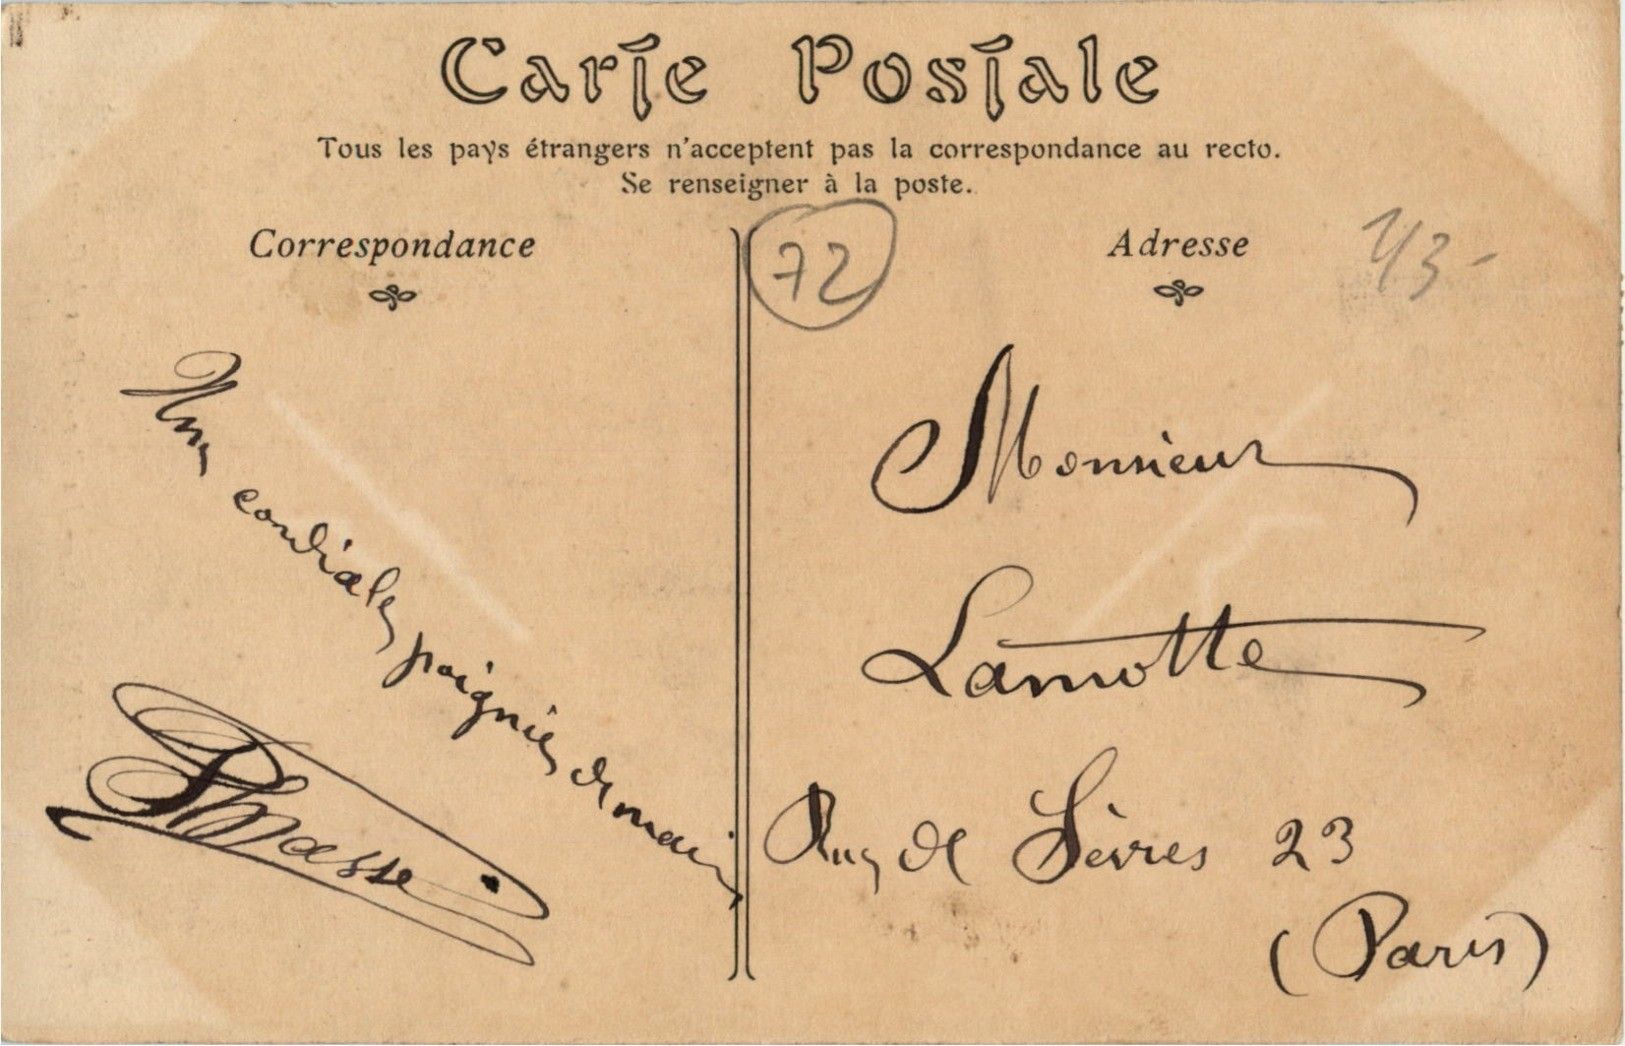 Carte Postale
Tous les pays étrangers n'acceptent pas la correspondance au recto.
Se renseigner à la poste.
Correspondance
Adresse
72
43-
cordiales poignées de main
Masse
Monsieur
Lamotte
Rue de Sèvres 23
(Paris)